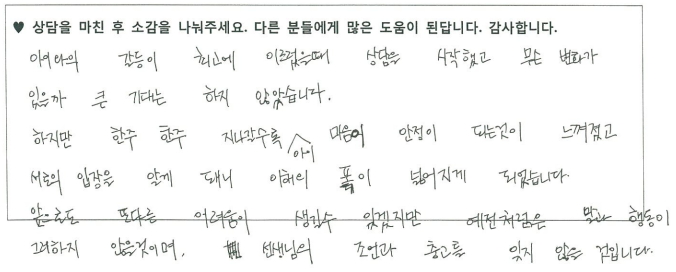 ♥ 상담을 마친 후 소감을 나눠주세요. 다른 분들에게 많은 도움이 된답니다. 감사합니다.
아이와의 갈등이 최고에 이르렀을때 상담을 시작했고 무슨 변화가
있을까 큰 기대는 하지 않았습니다.
하지만 한주 한주 지나갈수록 아이 마음이 안정이 되는것이 느껴졌고
서로의 입장을 알게 돼니 이해의 폭이 넓어지게 되었습니다.
앞으로도 또다른 어려움이 생길수 있겠지만 예전처럼은 말과 행동이
그러하지 않을것이며, 선생님의 조언과 충고를 잊지 않을 것입니다.